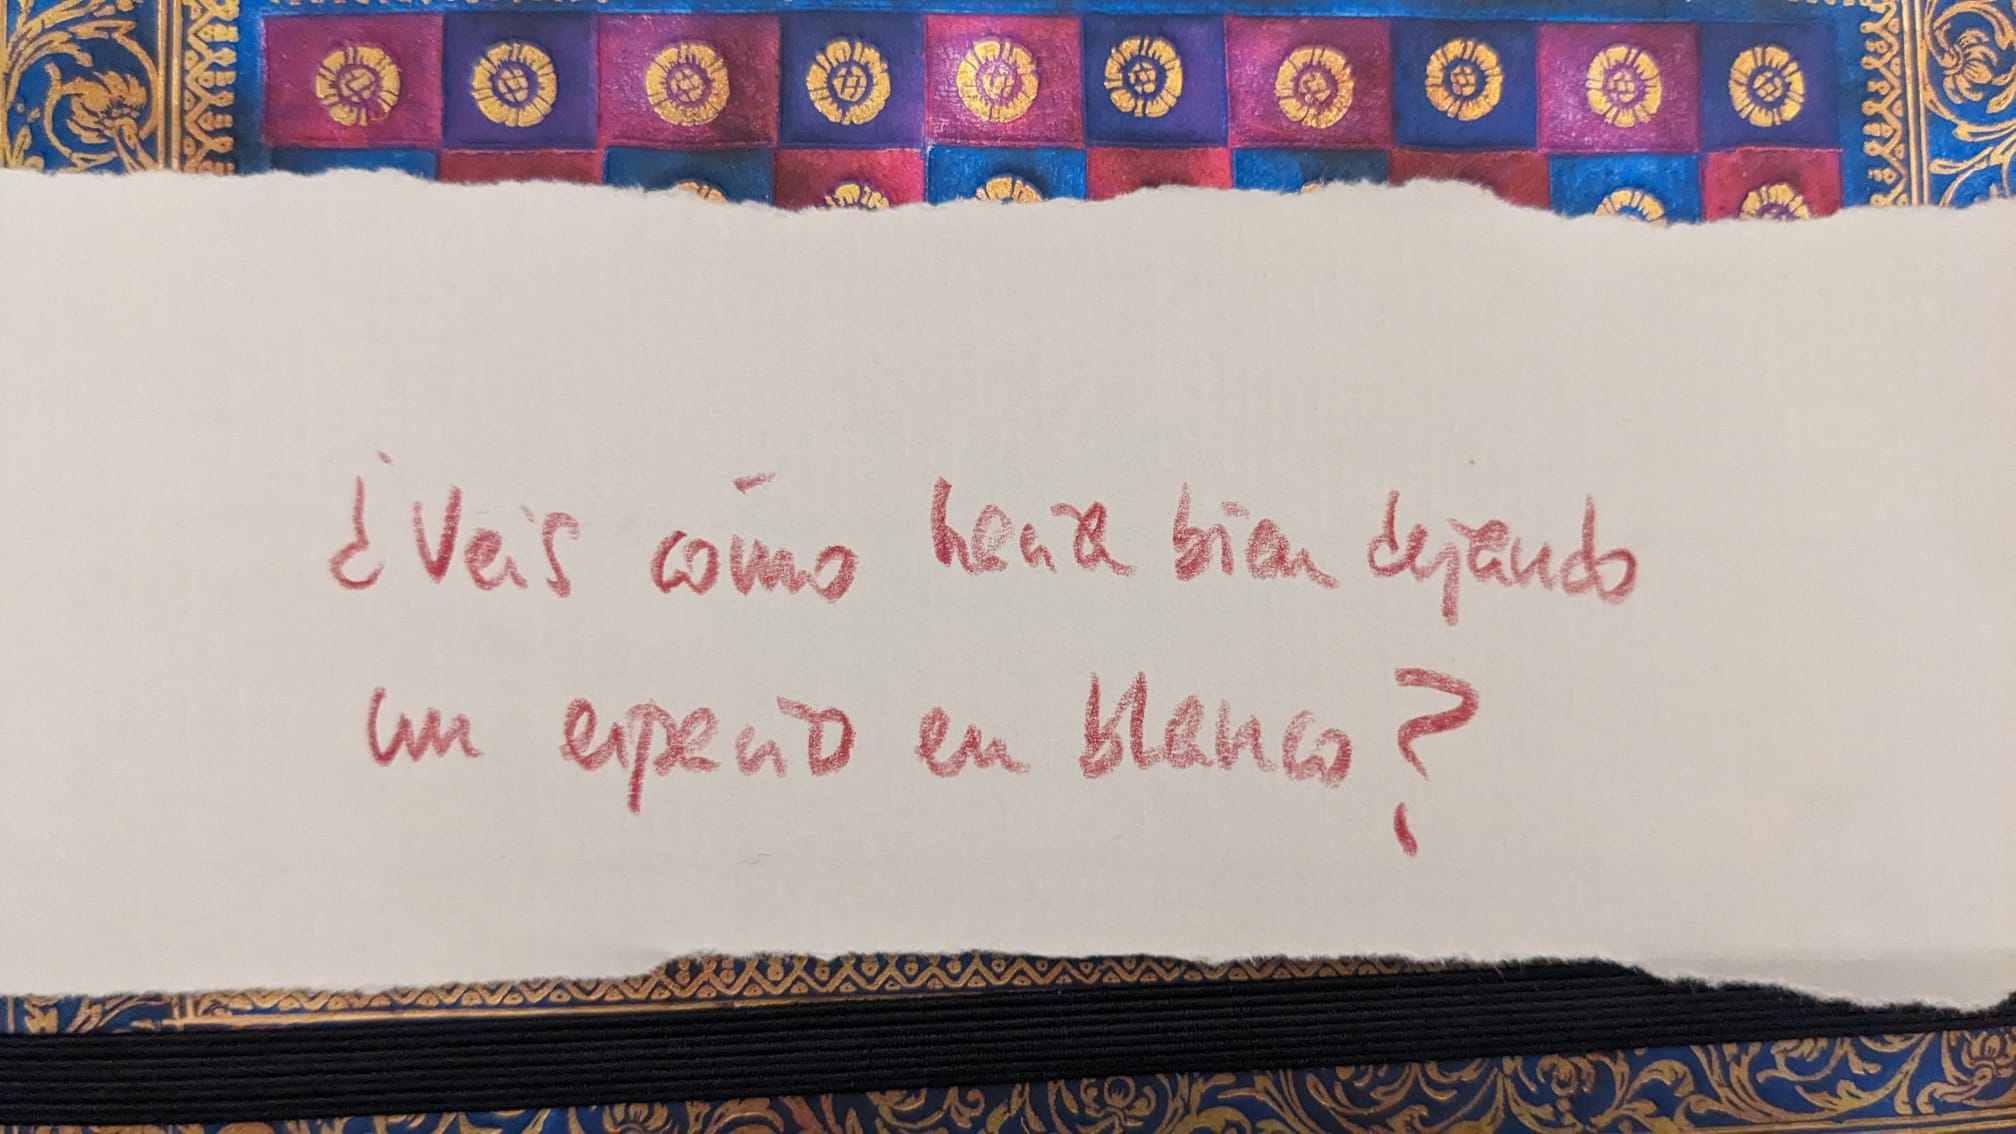 ¿Veis cómo hacía bien dejando
un espacio en blanco?